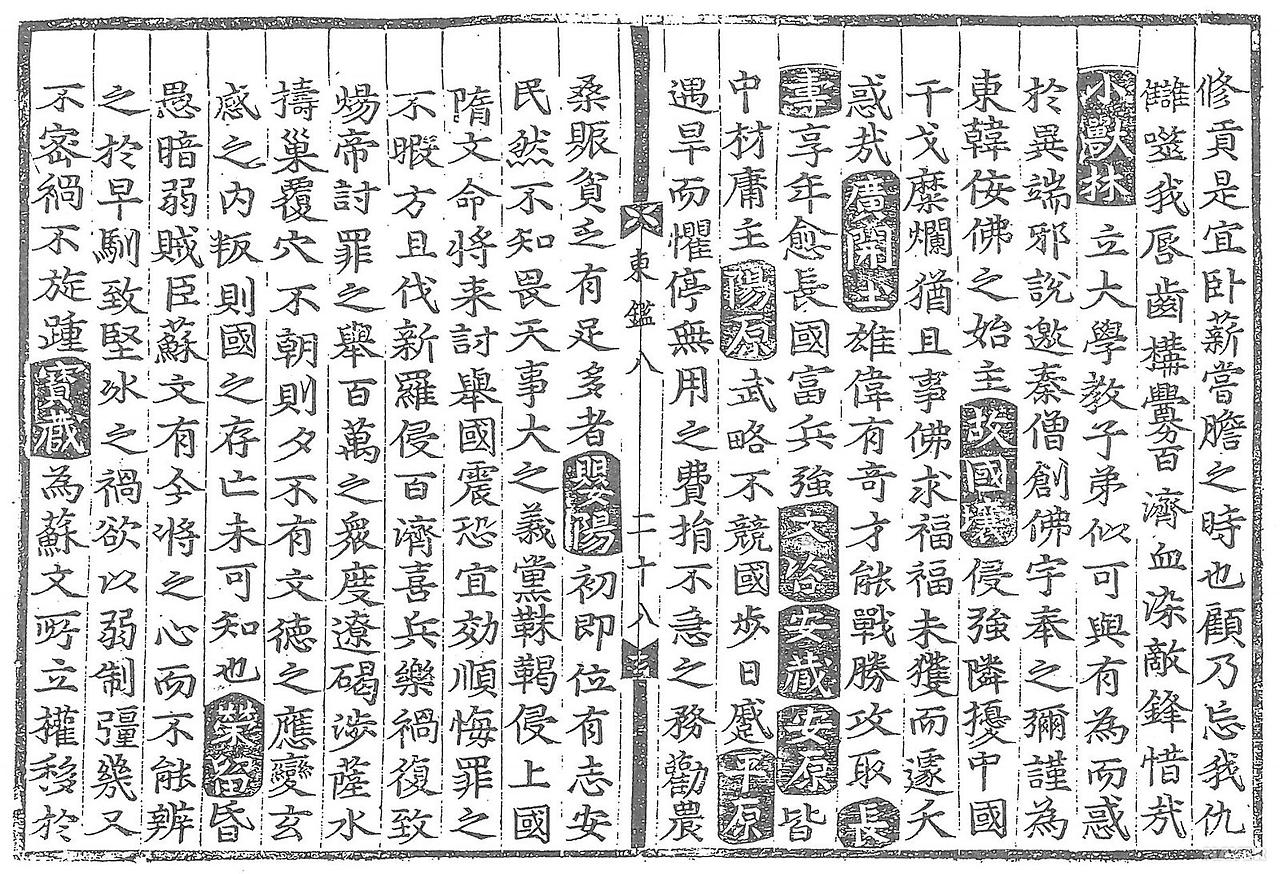 修貢是宜卧薪嘗膽之時也顧乃忘我仇
讎噬我唇齒搆釁百濟血染敵鋒惜㢤
小獸林立大學教子弟似可與有為而惑
於異端邪說邀秦僧創佛宇奉之彌謹為
東韓侫佛之始主故國壤侵強隣擾中國
干戈糜爛猶且事佛求福福未獲而遽夭
惑㢤廣開土雄偉有奇才能戰勝攻取長
壽享年愈長國富兵強文咨安藏安原皆
中材庸主陽原武略不競國步日蹙平原
遇旱而懼停無用之費捐不急之務勸農
東鑑八 二十八
桑賑貧乏有足多者嬰陽初即位有志安
民然不知畏天事大之義黨靺鞨侵上國
隋文命將来討舉國震恐宜効順悔罪之
不暇方且伐新羅侵百濟喜兵樂禍復致
煬帝討罪之舉百萬之衆度遼碣涉薩水
擣巢覆穴不朝則夕不有文徳之應變玄
感之内叛則國之存亡未可知也榮留昏
愚暗弱賊臣蘇文有今將之心而不能辨
之於早馴致堅冰之禍欲以弱制彊幾又
不密禍不旋踵寳藏為蘇文所立權移於